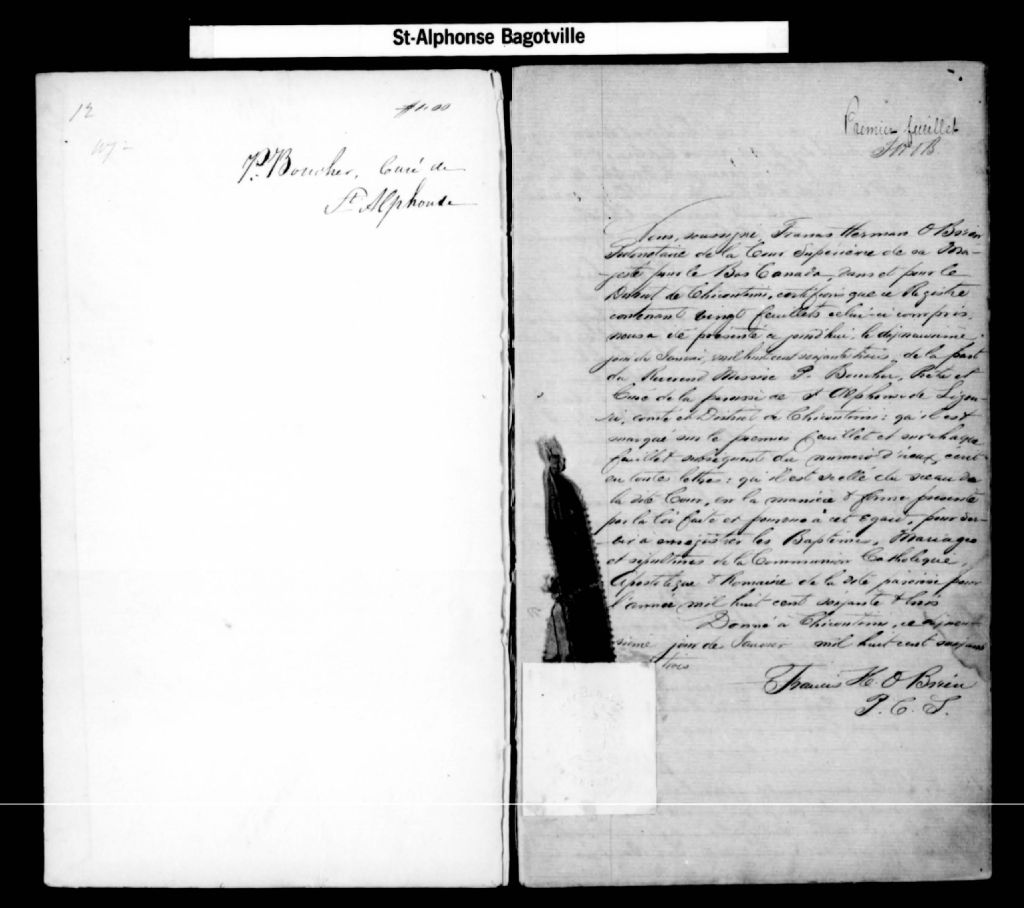 St-Alphonse Bagotville
12
P. Boucher, Curé de
St Alphonse
Premier feuillet
Nous, soussigné, Francis Herman O Brien
Protonotaire de la Cour Supérieure de sa Ma-
-jesté pour le Bas Canada, dans et pour le
District de Chicoutimi, certifions que ce Registre
contenant vingt feuillets celui-ci compris,
nous a été présenté aujourd'hui, le dixneuvième
jour de Janvier, mil huit cent soixante trois, de la part
du Révérend Messire P. Boucher, Prêtre et
Curé de la paroisse de St Alphonse de Liguo-
-ri, comté et District de Chicoutimi: qu'il est
marqué sur le premier feuillet et sur chaque
feuillet subséquent du numéro d'iceux, écrit
en toutes lettres: qu'il est scellé du sceau de
la dite Cour, en la manière & forme
par la loi faite et pourvue à cet égard, pour ser-
-vir à enregistrer les Baptêmes, Mariages
et sépultures de la Communion Catholique,
Apostolique & Romaine de la dite paroisse pour
l'année mil huit cent soixante & trois
Donné à Chicoutimi, ce dixneu-
vième jour de Janvier mil huit cent soixante
trois
Francis H. O Brien
P. C. S.